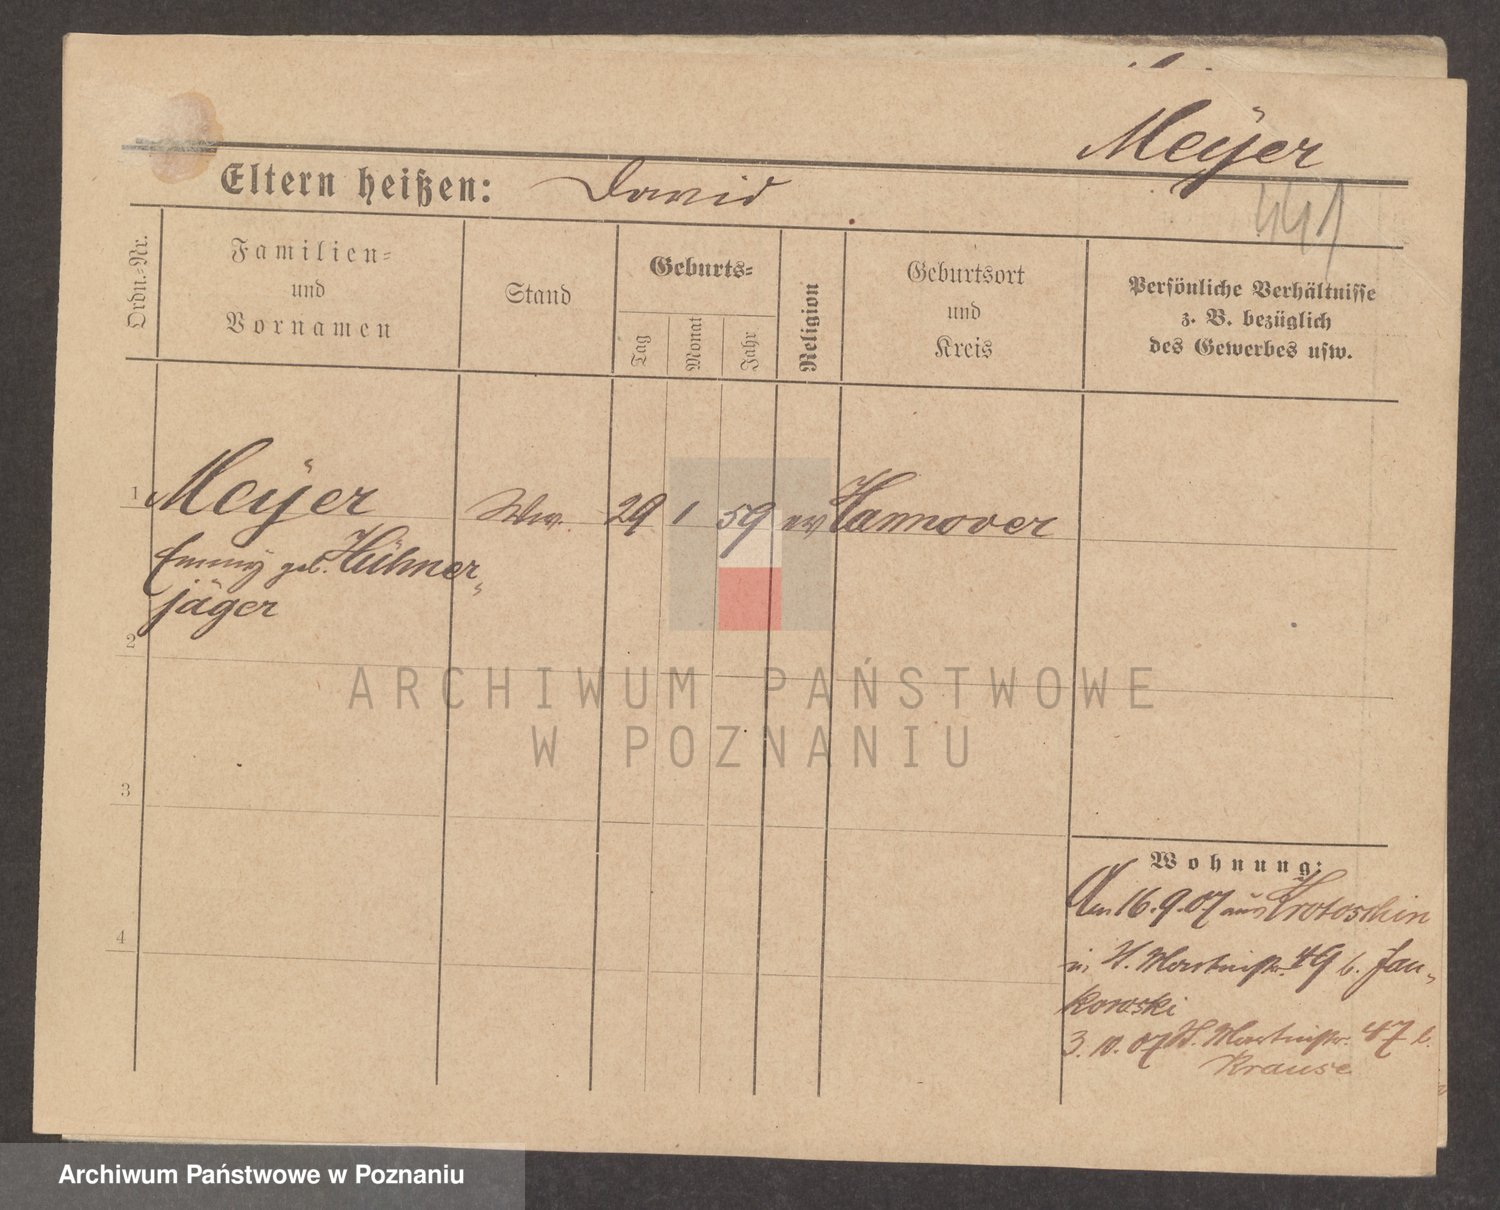 Meyer
441
Eltern heißen: David
Ordn.=Nr.
Familien=
und
Vornamen
Stand
Geburts=
Tag
Monat
Jahr
Religion
Geburtsort
und
Kreis
Persönliche Verhältnisse
z. B. bezüglich
des Gewerbes usw.
1 Meyer Ww. 29 1 59 ev Hannover
Emmy geb. Hühner-
jäger
2
3
4
Wohnung:
Am 16.9.07 aus Krotoschin
in St. Martinstr. 49 b. Jan-
kowski
3. 10. 07 St. Martinstr. 47 b.
Krause
ARCHIWUM PAŃSTWOWE
W POZNANIU
Archiwum Państwowe w Poznaniu